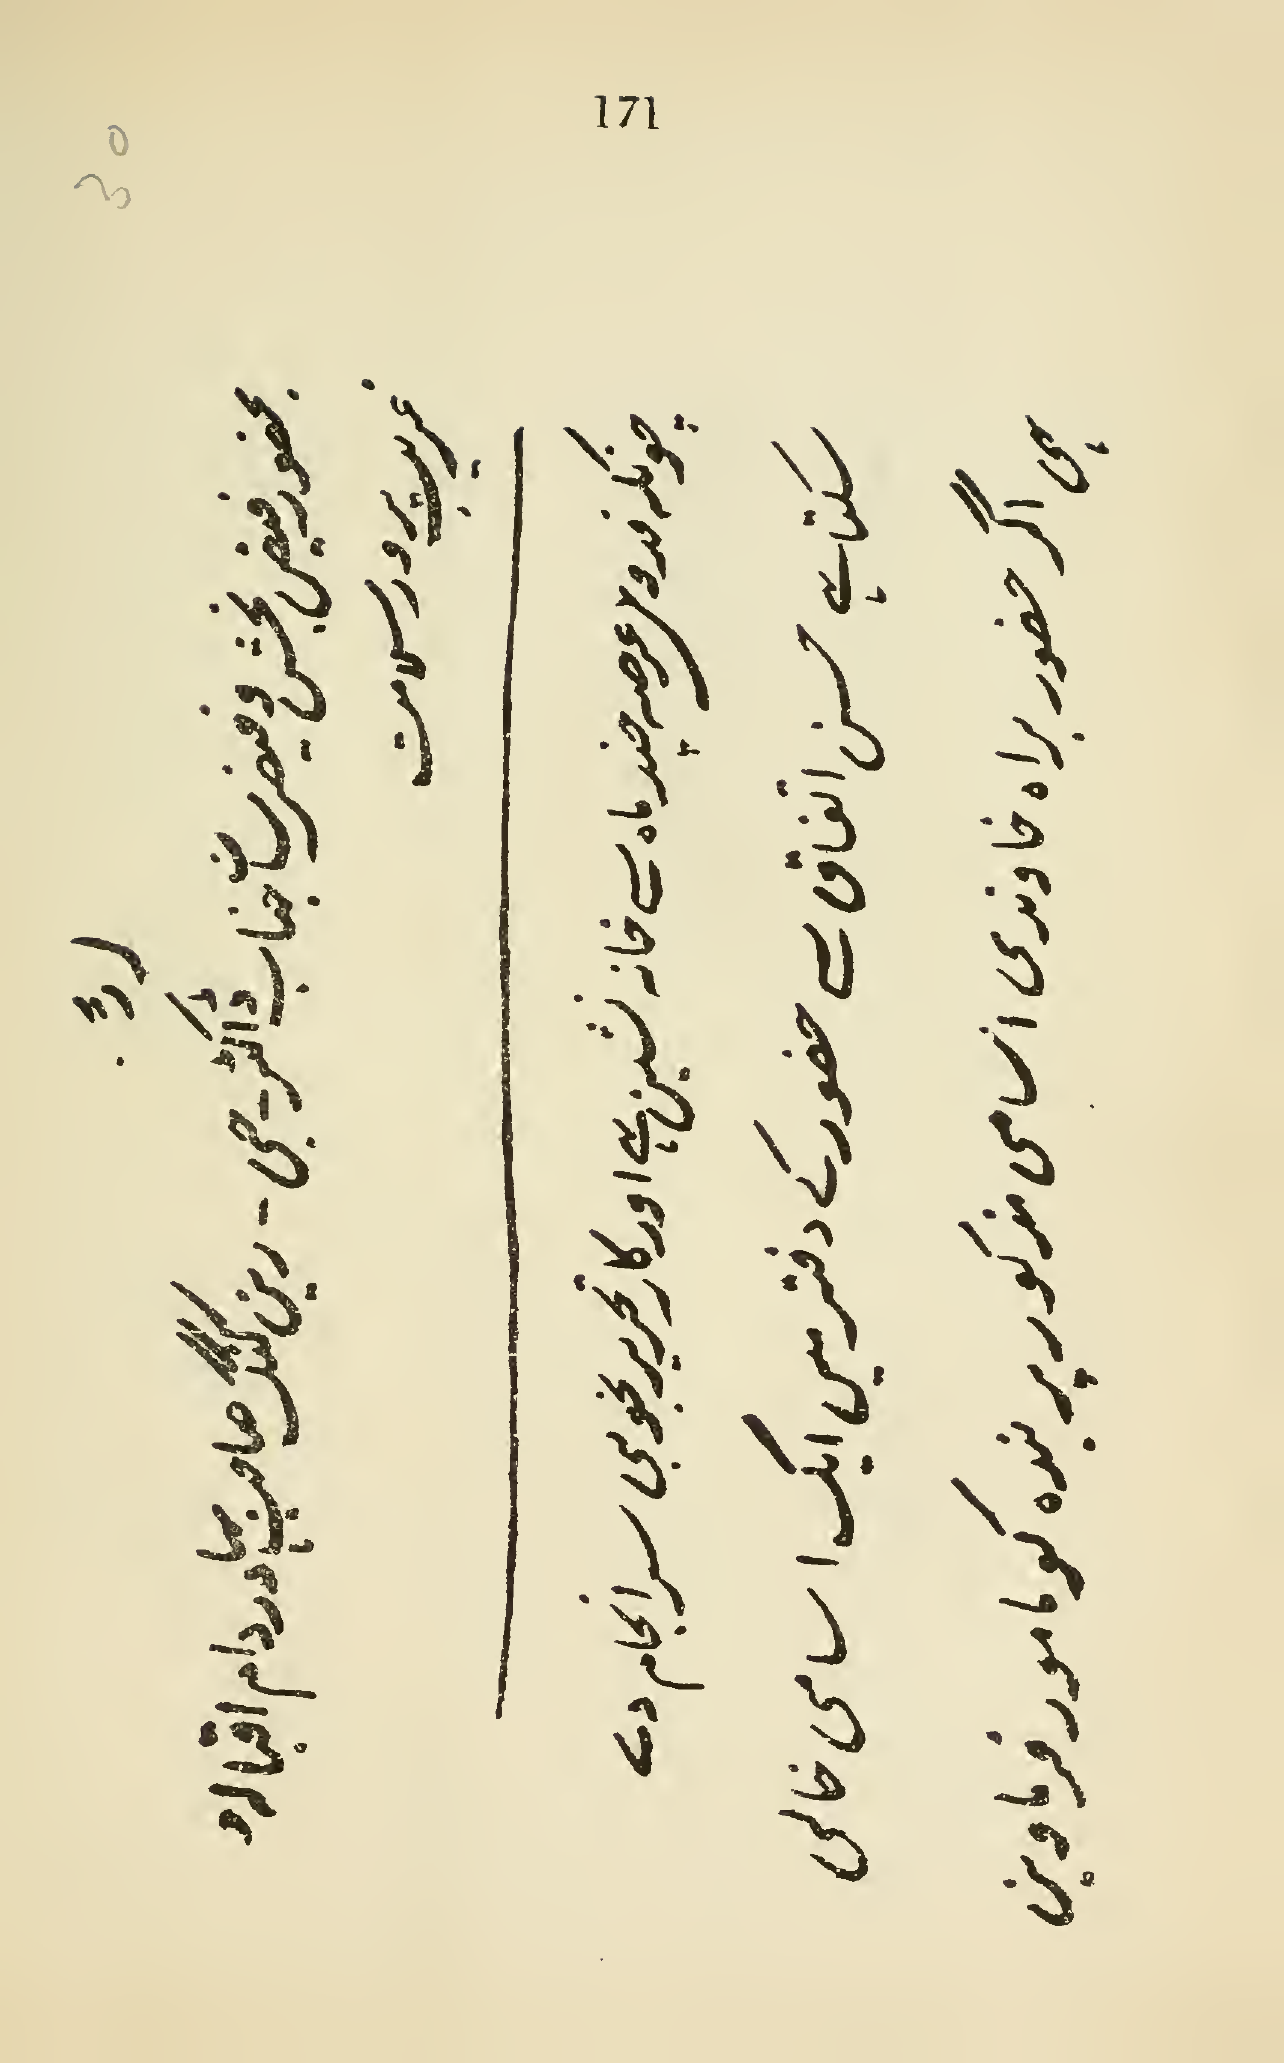 171
30
بحضور فیض بخش و فیض رساں جناب ڈاکٹر - جی - رین کنگ صاحب بہادر دام اقبالہ
غریب پرور سلامت
چونکہ فدوی عرصہ چند ماہ سے خانہ نشین ہے اور کار تحریر بخوبی سر انجام دے
سکتا ہے حسن اتفاق سے حضور کے دفتر میں ایک اسامی خالی
ہی اگر حضور براہ خاوندی اسامی مذکور پر بندہ کو مامور فرماوین